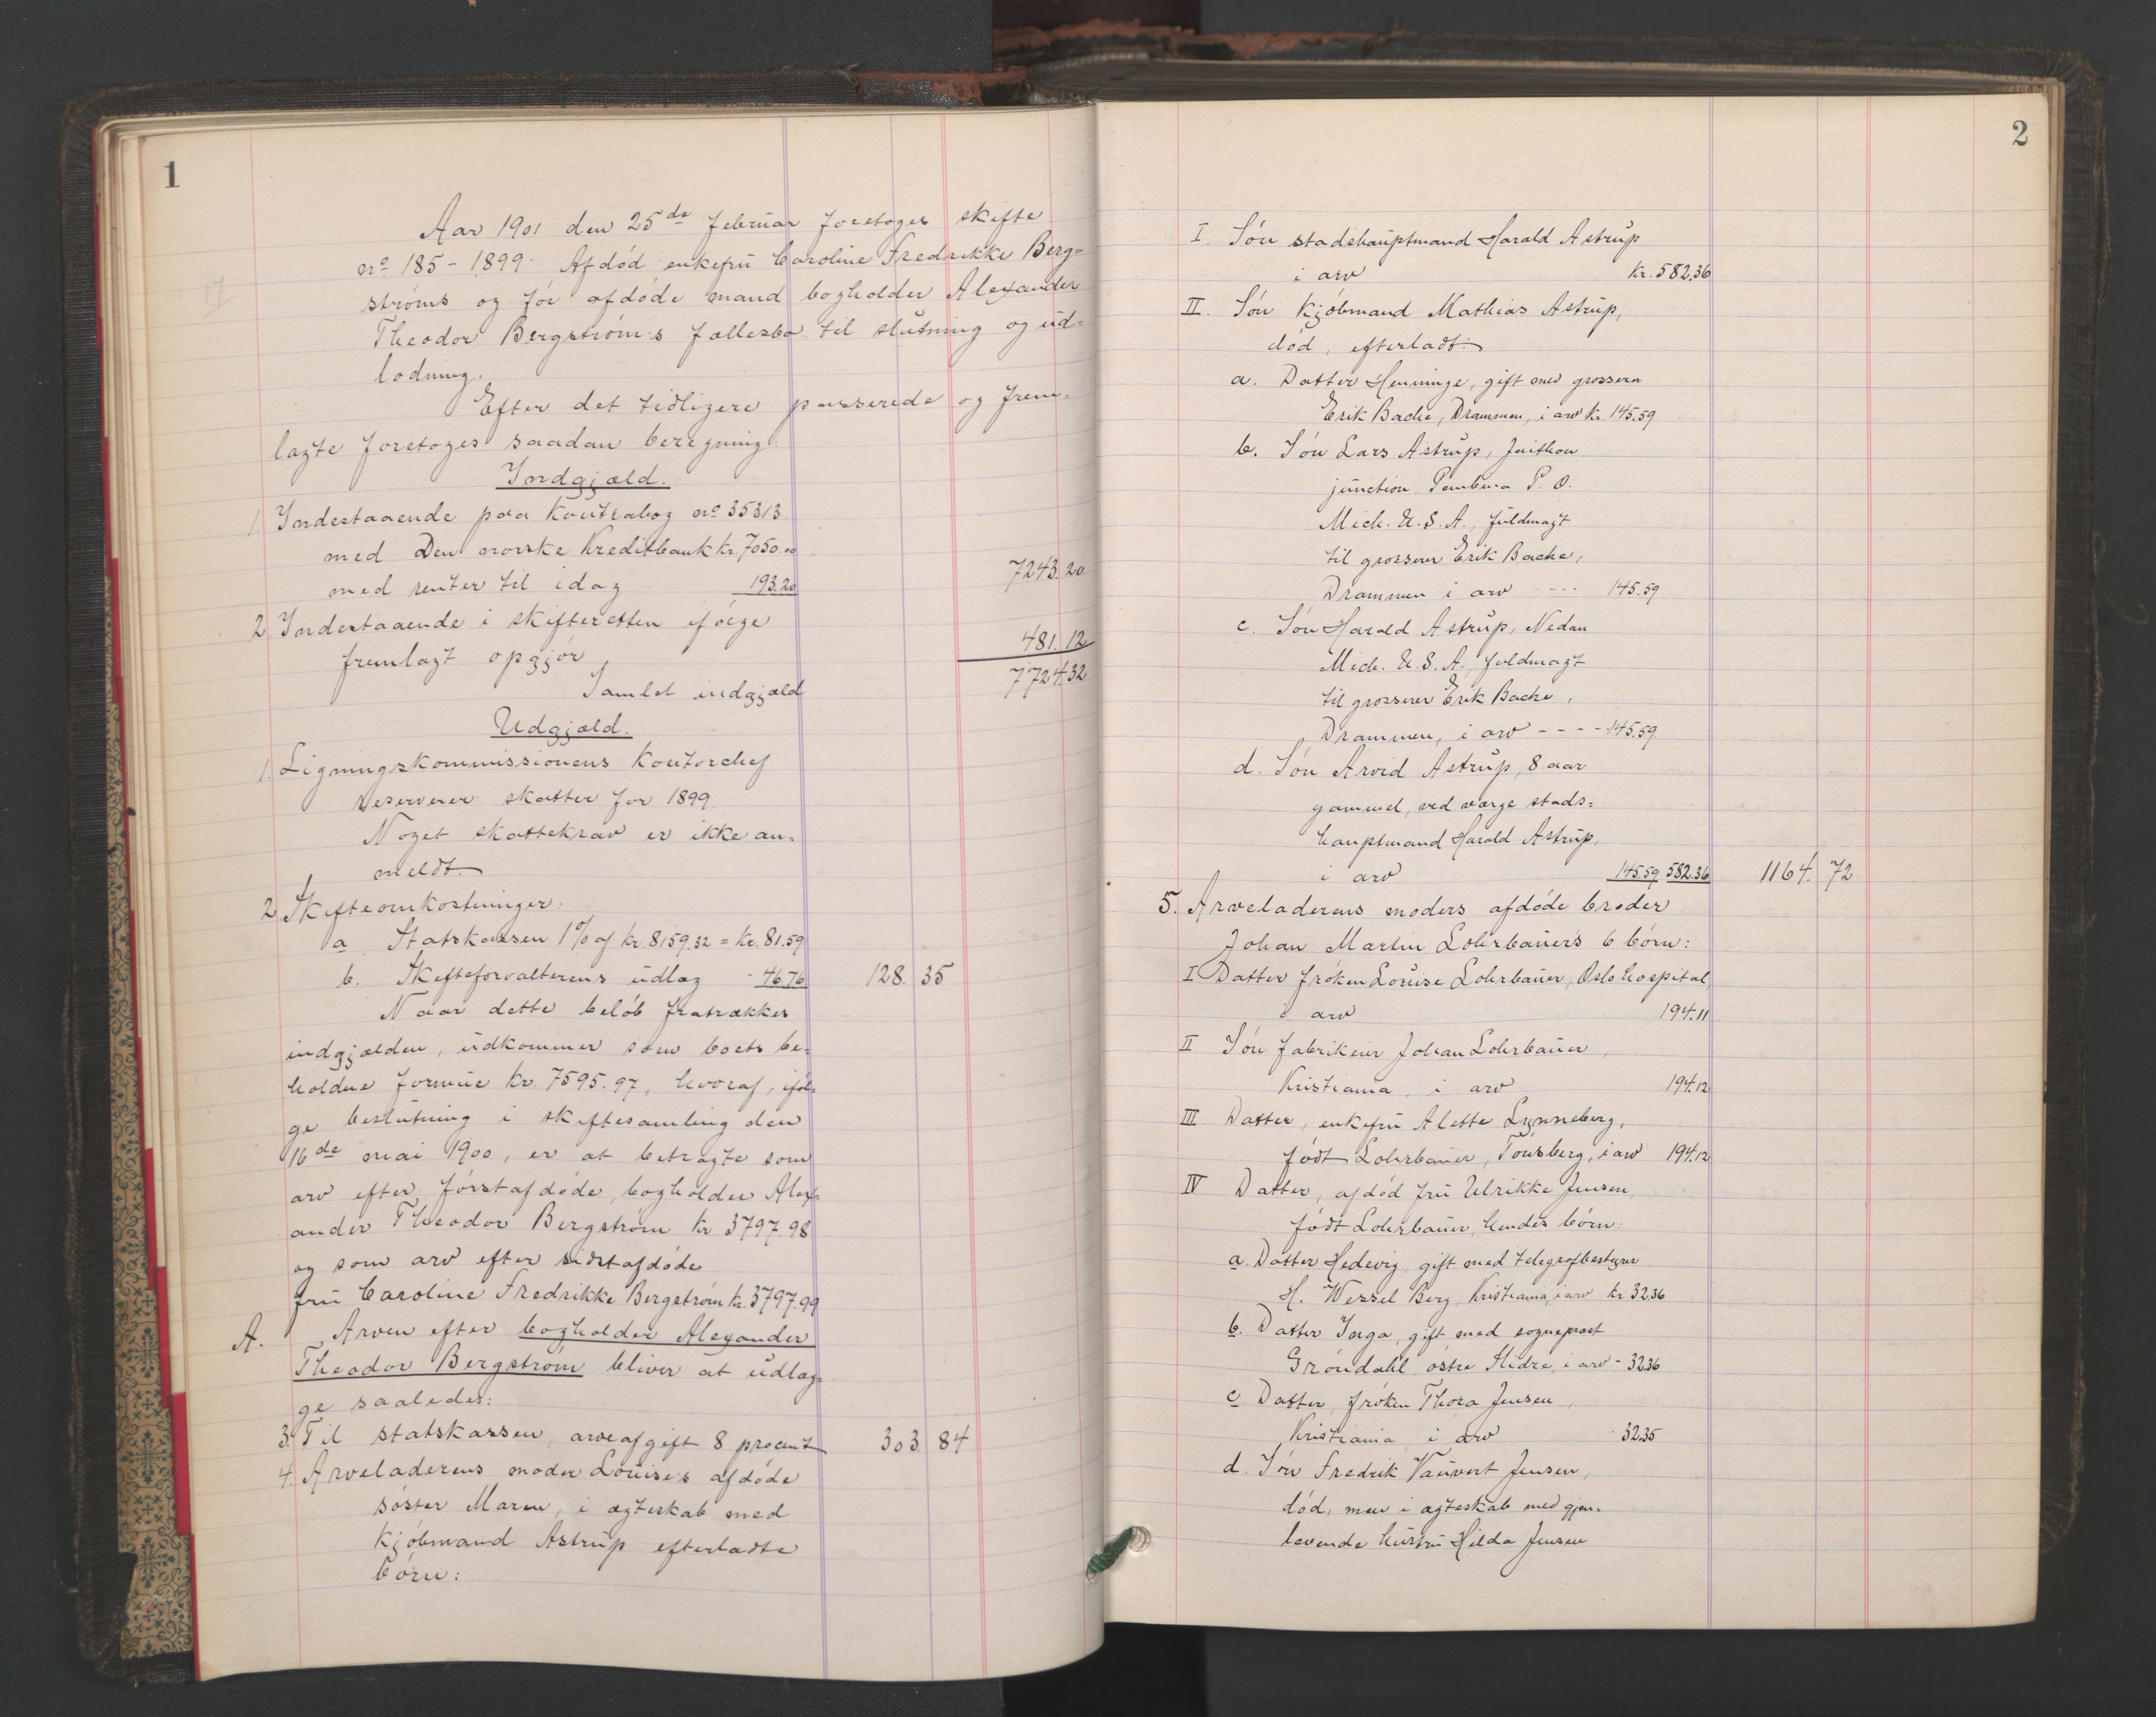 1
Aar 1901 den 25de februar foretoges skifte
no 185 - 1899. Afdód enkefrú Caroline Fredrikke Berg=
stróms og fór afdóde mand bogholder Alexander
Theodor Bergstróm's fællesbo til slútning og úd=
lodning.
Efter det tidligere passerede og frem=
lagte foretoges saadan beregning:
Indgjæld.
1 Indestaaende paa Kontrabog no 35313
med Den norske Kreditbank kr. 7050.00
med renter til idag 193.20 7243.20
2. Indestaaende i skifteretten ifólge
fremlagt opgjór 481.12
Samlet indgjæld 7724.32
Udgjæld.
1. Ligningskommissionens Kontorchef
reserverer skatter for 1899.
Noget skattekrav er ikke an=
meldt.
2. Skifteomkostninger:
a Statskassen 1% af kr. 8159.32 = kr. 81.59
b. Skifteforvalterens údlæg - 46.76 128. 35
Naar dette belób fratrækkes
indgjælden, údkommer som boets be=
holdne formúe kr. 7595.97, hvoraf, ifól=
ge beslútning i skiftesamling den
16de mai 1900, er at betragte som
arv efter fórstafdóde, bogholder Alex=
ander Theodor Bergstróm kr 3797.98
og som arv efter sidstafdóde
frú Caroline Fredrikke Bergstróm kr. 3797.99
A. Arven efter bogholder Alexander
Theodor Bergstróm bliver at údlæg=
ge saaledes:
3. Til statskassen, arveafgift 8 procent 303. 84
4. Arveladerens moder Loúise's afdóde
sóster Maren, i ægteskab med
kjóbmand Astrúp efterladte
bórn:
2
I. Són stadshaúptmand Harald Astrúp
i arv kr. 582.36
II. Són kjóbmand Mathias Astrúp,
dód, efterladt:
a. Datter Henninge, gift med grosserer
Erik Bache, Drammen, i arv kr. 145.59
b. Són Lars Astrúp,
júnction, P. O.
Mich. U. S. A., fúldmagt
til grosserer Erik Bache,
Drammen i arv --- 145.59
c. Són Harald Astrúp, Nedan
Mich. U. S. A., fuldmagt
til grosserer Erik Bache,
Drammen, i arv ---- 145.59
d. Són Arvid Astrúp, 8 aar
gammel, ved værge stads=
hauptmand Harald Astrúp,
i arv 145.59 582.36 1164. 72
5. Arveladerens moders afdóde broder
Johan Martin Lohrbaúer's 6 bórn:
I Datter fróken Loúise Lohrbaúer, Oslo hospital,
i arv 194.11
II Són fabrikeier Johan Lohrbaúer,
Kristiania, i arv 194.12
III Datter, enkefrú Alette Lynneberg,
fódt Lohrbaúer, Tónsberg, i arv 194.12
IV Datter, afdód frú Ulrikke Jensen,
fódt Lohrbaúer, hendes bórn:
a. Datter Hedevig, gift med telegrafbestyrer
H. Wessel Berg, Kristiania, i arv kr 32.36
b. Datter Inga, gift med sogneprest
Gróndahl, óstre Slidre, i arv - 32.36
c Datter, fróken Thora Jensen,
Kristiania, i arv 32.35
d. Són Fredrik Jensen,
dód, men i ægteskab med gjen=
levende hústrú Hilda Jensen